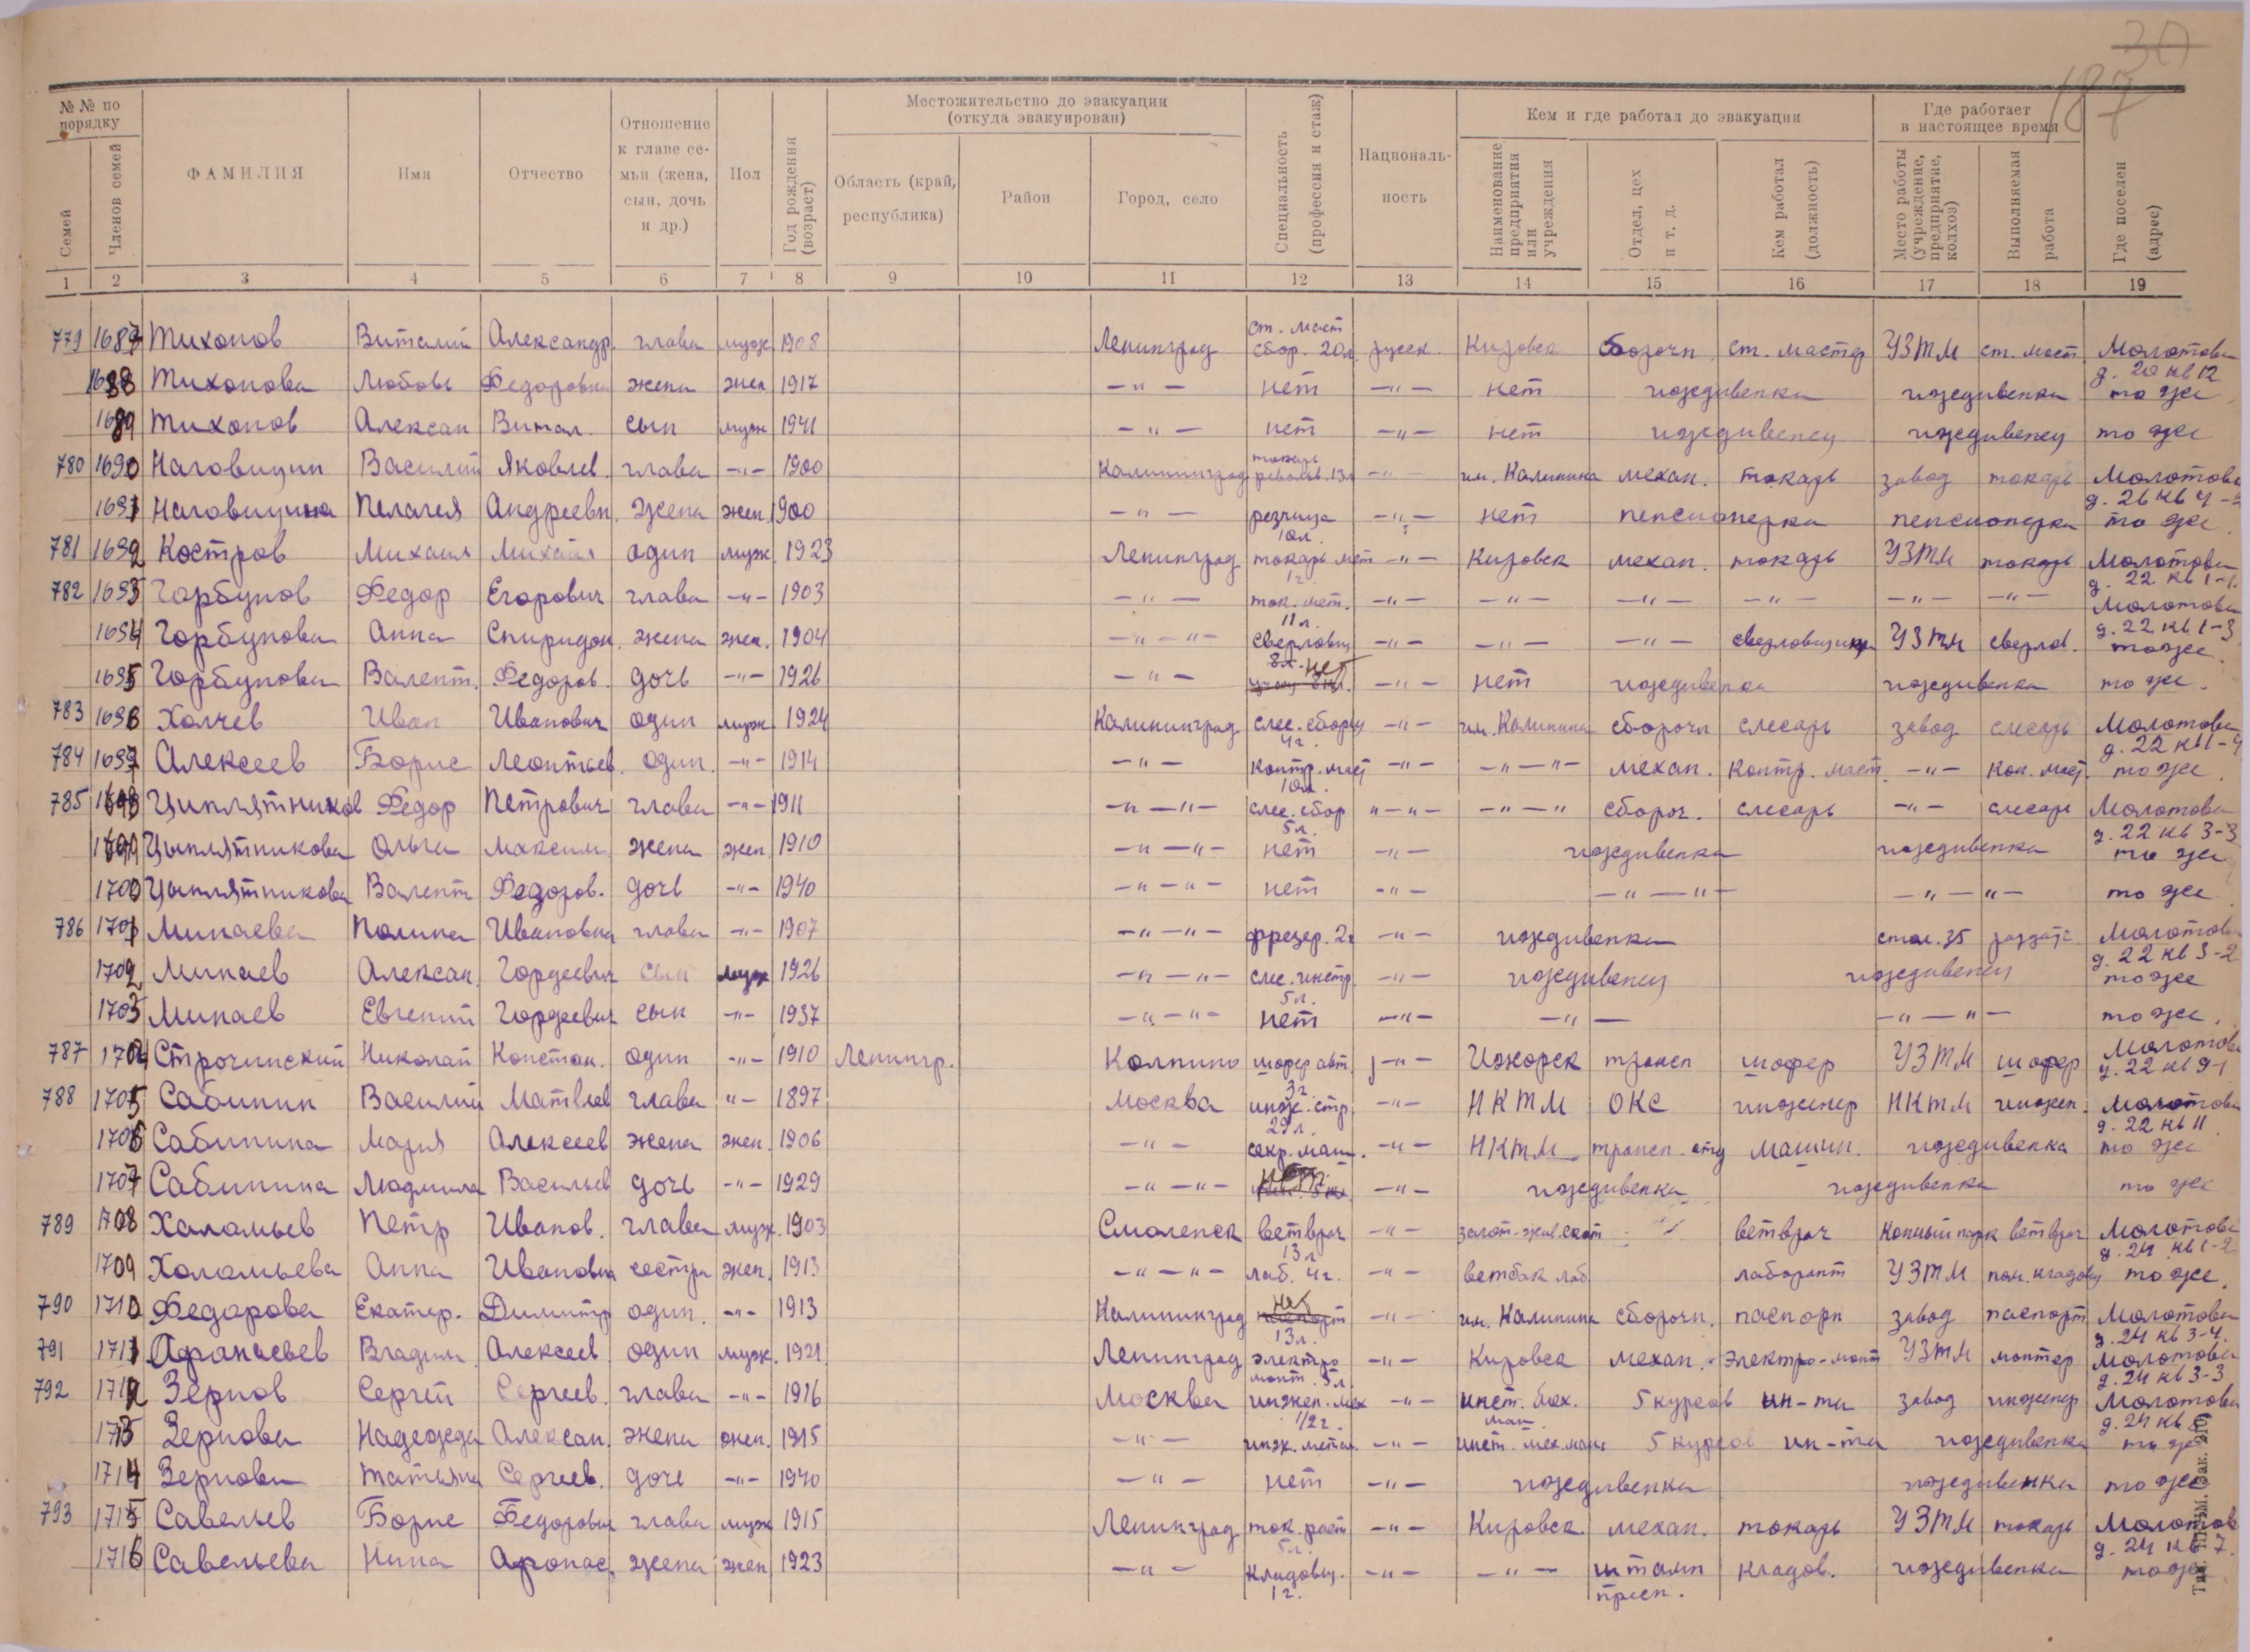 30
187
№ № по порядку
Семей
Членов семей
ФАМИЛИЯ
Имя
Отчество
Отношение к главе семьи (жена, сын, дочь и др.)
Пол
Год рождения (возраст)
Местожительство до эвакуации (откуда эвакуирован)
Область (край, республика)
Район
Город, село
Специальность (профессия и стаж)
Националь-ность
Кем и где работал до эвакуации
Наименование предприятия или учреждения
Отдел, цех и т. д.
Кем работал (должность)
Где работает в настоящее время
Место работы (учреждение, предприятие, колхоз)
Выполняемая работа
Где поселен (адрес)
1 2 3 4 5 6 7 8 9 10 11 12 13 14 15 16 17 18 19
779 1687 Тихонов Виталий Александр. глава муж 1908 Ленинград ст. маст сбор. 20л русск. Кировск сборочн ст. мастер УЗТМ ст. маст. Молотова д. 20 кв 12
1688 Тихонова Любовь Федоровна жена жен 1917 -"- нет -"- нет иждивенка иждивенка то же
1689 Тихонов Алексан Витал. сын муж 1941 -"- нет -"- нет иждивенец иждивенец то же
780 1690 Наговицин Василий Яковлев. глава -"- 1900 Калининград токарь револьв. 13л -"- им. Калинина механ. токарь завод токарь Молотова д. 26 кв 4-2
1691 Наговицина Пелагея Андреевн. жена жен. 1900 -"- резчица 10л. -"- нет пенсионерка пенсионерка то же
781 1692 Костров Михаил Михайл один муж. 1923 Ленинград токарь мет 1г. -"- Кировск механ. токарь УЗТМ токарь Молотова д. 22 кв 1-1
782 1693 Горбунов Федор Егорович глава -"- 1903 -"- ток. мет. 11л. -"- -"- -"- -"- -"- -"- Молотова д. 22 кв 1-3
1694 Горбунова Анна Спиридон. жена жен. 1904 -"-"- сверловщ 8л. -"- -"- -"- сверловщица УЗТМ сверлов. то же.
1695 Горбунова Валент. Федоров. дочь -"- 1926 -"- нет -"- нет иждивенка иждивенка то же.
783 1696 Холчев Иван Иванович один муж 1924 Калининград слес. сборщ 4г. -"- им. Калинина сборочн слесарь завод слесарь Молотова д. 22 кв 1-4
784 1697 Алексеев Борис Леонтьев. один. -"- 1914 -"- контр. маст 10л. -"- -"-"- механ. контр. маст. -"- кон. маст. то же.
785 1698 Циплятников Федор Петрович глава -"- 1911 -"-"- слес. сбор 5л. "-"- -"-" сбороч. слесарь -"- слесарь Молотова д. 22 кв 3-3
1699 Цыплятникова Ольга Максим. жена жен 1910 -"-"- нет -"- иждивенка иждивенка то же
1700 Цыплятникова Валент Федоров. дочь -"- 1940 -"-"- нет -"- -"-"- -"-"- то же
786 1701 Минаева Полина Ивановна глава -"- 1907 -"-"- фрезер. 2г -"- иждивенка стол. 35 раздатч. Молотова д. 22 кв 3-2
1702 Минаев Алексан. Гордеевич сын муж 1926 -"-"- слес. инстр. 5л. -"- иждивенец иждивенец то же
1703 Минаев Евгений Гордеевич сын -"- 1937 -"-"- нет -"- -"- -"-"- то же.
787 1704 Строчинский Николай Констан. один -"- 1910 Ленингр. Колпино шофер авт. 3г. -"- Ижорск трансп шофер УЗТМ шофер Молотова д. 22 кв 9-1
788 1705 Сабинин Василий Матвеев глава "- 1897 Москва инж. стр. 29л. -"- НКТМ ОКС инженер НКТМ инжен. Молотова д. 22 кв 11
1706 Сабинина Мария Алексеев жена жен. 1906 -"- секр. маш. -"- НКТМ трансп. отд машин. иждивенка то же
1707 Сабинина Людмила Васильев дочь -"- 1929 -"-"- нет -"- иждивенка иждивенка то же
789 1708 Халамьев Петр Иванов. глава муж. 1903 Смоленск ветврач 13л -"- загот-жив.скот ветврач Конный парк ветврач Молотова д. 24 кв 1-2
1709 Холамьева Анна Ивановна сестра жен. 1913 -"-"- лаб. 4г. -"- ветбак лаб лаборант УЗТМ пом. кладовщ то же.
790 1710 Федорова Екатер. Димитр один. -"- 1913 Калининград нет 13л. -"- им. Калинина сборочн. паспорн завод паспорт Молотова д. 24 кв 3-4.
791 1711 Афанасьев Владим. Алексеев один муж. 1921 Ленинград электро монт. 5л -"- Кировск механ. электро-монт УЗТМ монтер Молотова д. 24 кв 3-3
792 1712 Зернов Сергей Сергеев. глава -"- 1916 Москва инжен. мех 1/2г. -"- инст. мех. маш. 5 курсов ин-та завод инженер Молотова д. 24 кв 6
1713 Зернова Надежда Алексан. жена жен. 1915 -"- инж. метал. -"- инст. мех. маш 5 курсов ин-та иждивенка то же
1714 Зернова Татьяна Сергеев. дочь -"- 1940 -"- нет -"- иждивенка иждивенка то же
793 1715 Савельев Борис Федорович глава муж 1915 Ленинград ток. раст 5л. -"- Кировск. механ. токарь УЗТМ токарь Молотов д. 24 кв 7.
1716 Савельева Нина Афонас. жена жен 1923 -"- кладовщ. 1г. -"- -"- штамп пресн. кладов. иждивенка то же